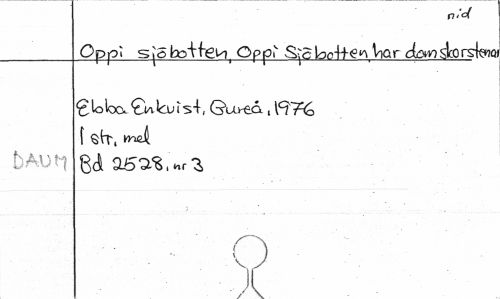 nid
Oppi sjöbotten, Oppi Sjöbotten, har dom skorstenar
Ebba Enkvist, Bureå, 1976
1 str, mel
DAUM Bd 2528, nr 3